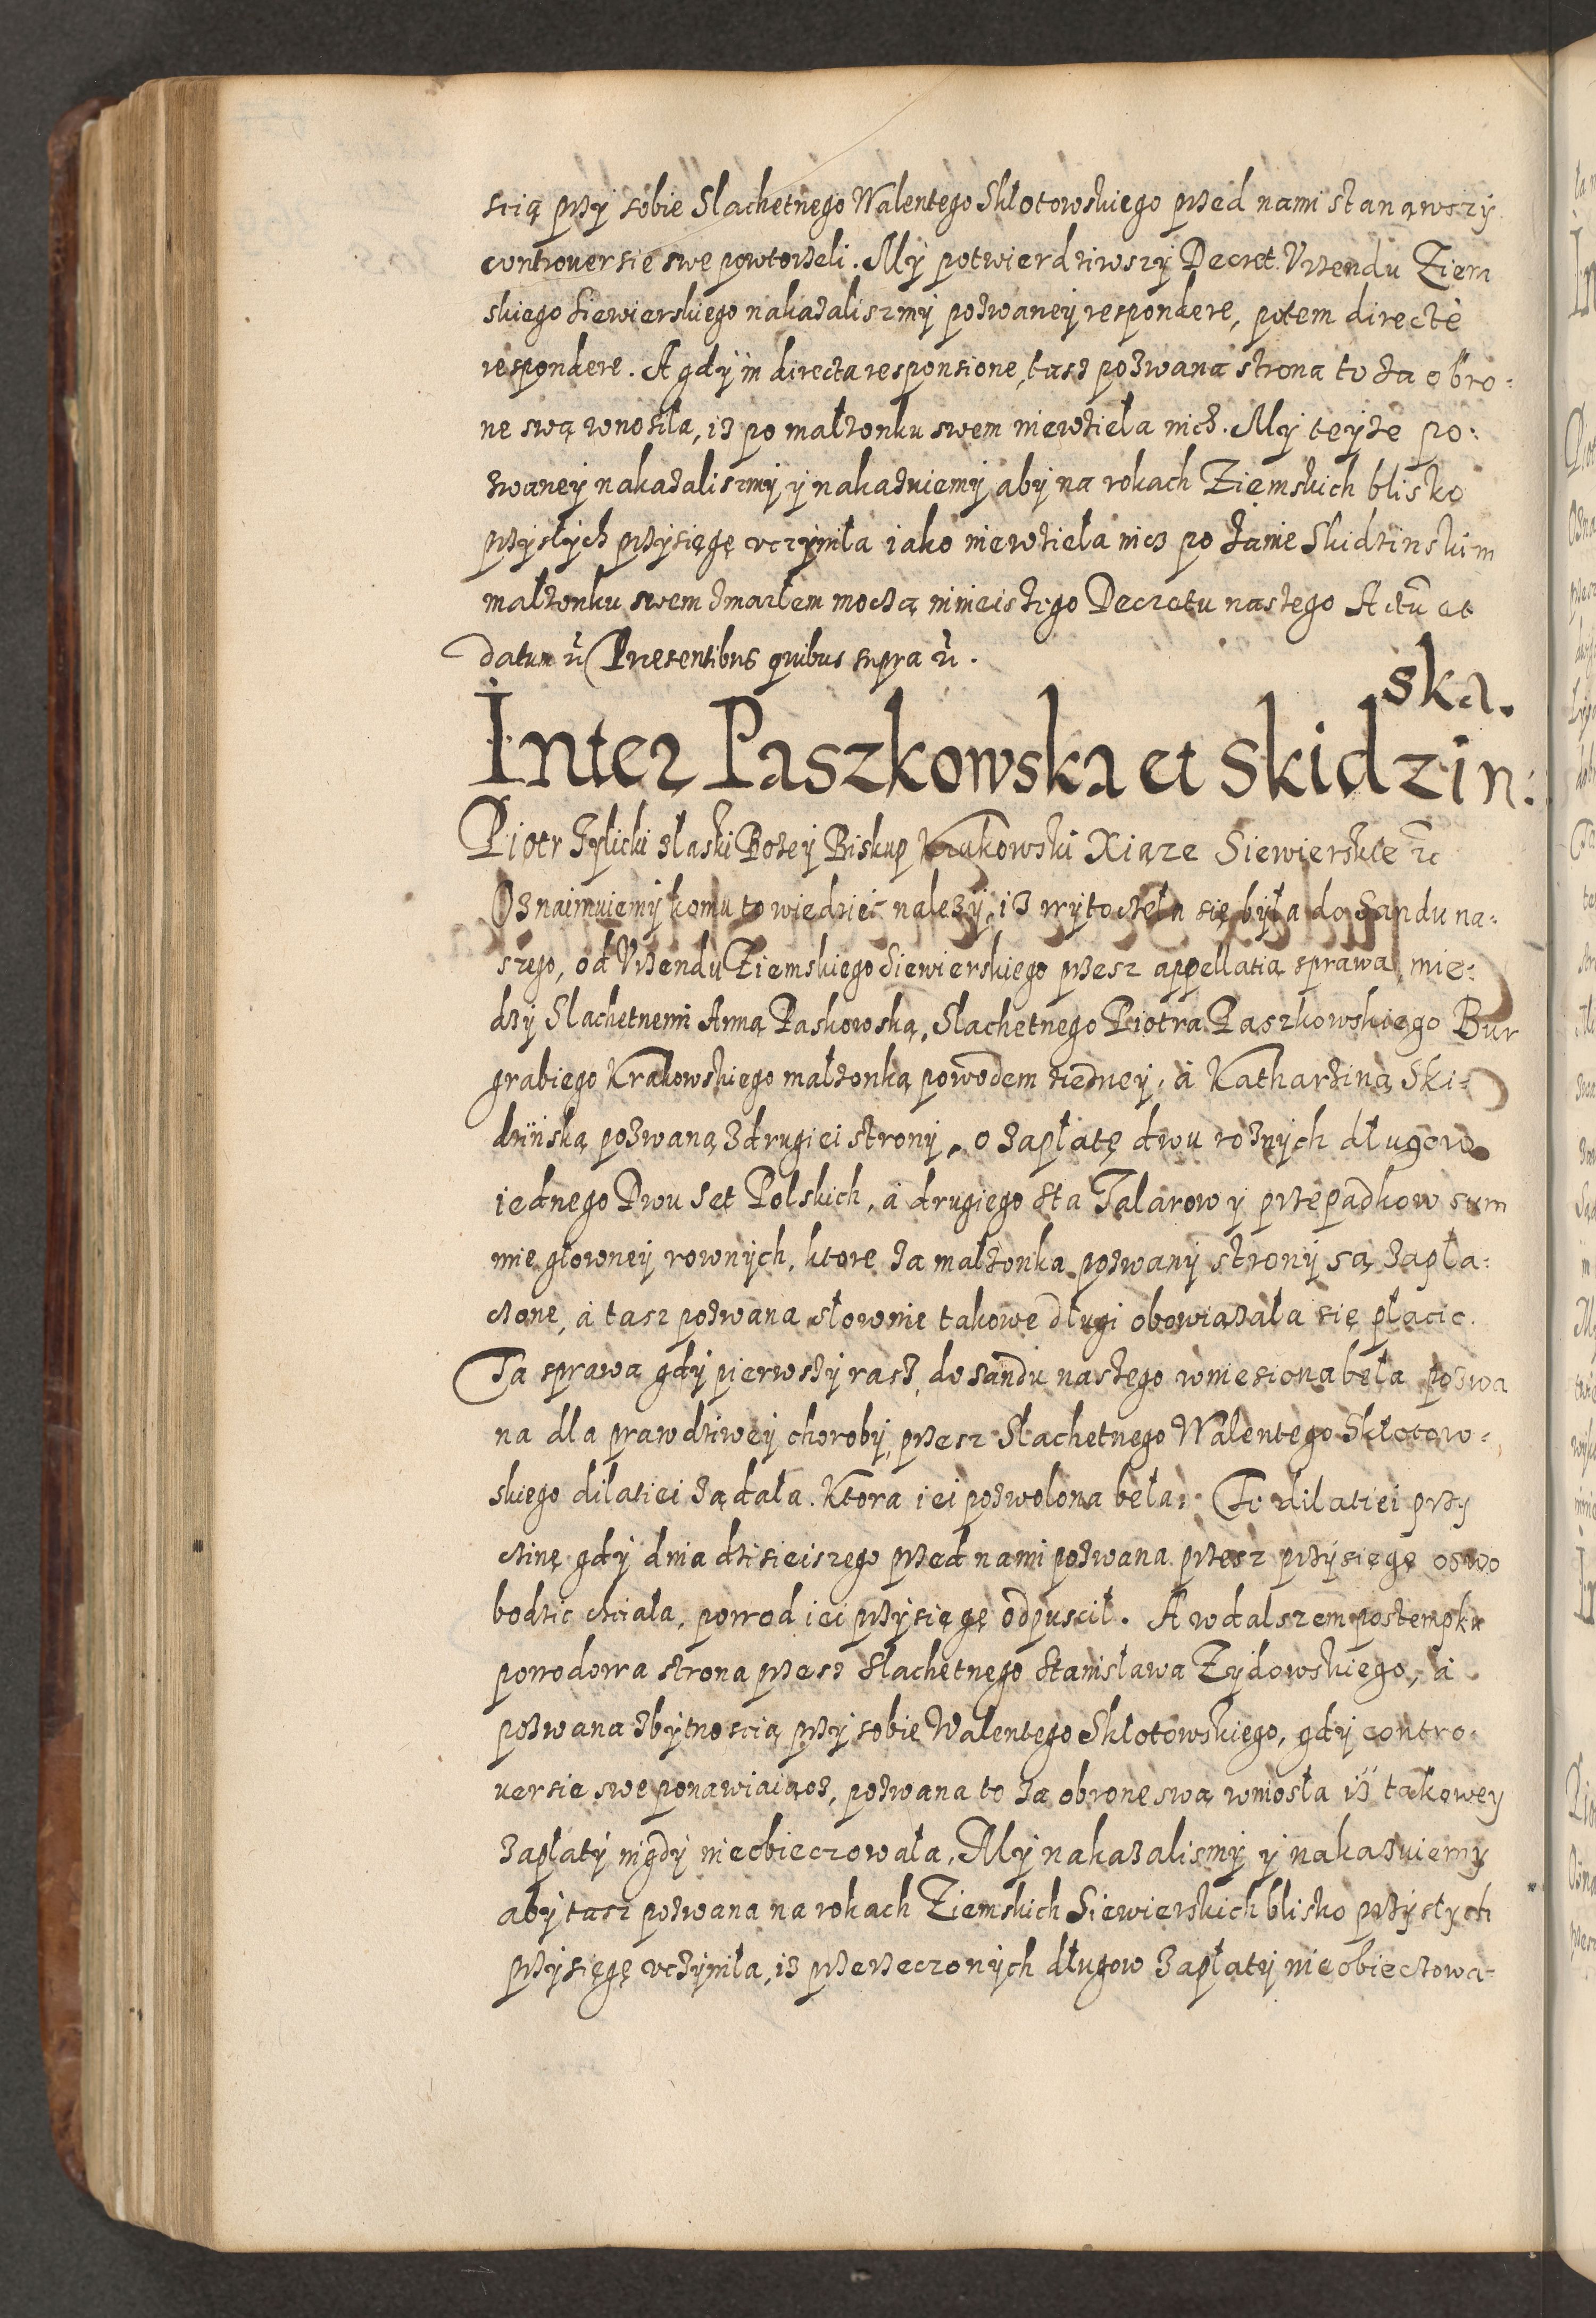 scią przy sobie Slachetnego Walentego Skłotowskiego przed nami stanąwszy
controuersie swe powtorzeli. My potwierdziwszy Decret Vrzendu Ziem
skiego Siewierskiego nakazaliszmy pozwaney respondere, potem directè
respondere. A gdy in directa responsione, tasz pozwana strona to za obro:
ne swą wnosiła, iż po małzonku swem niewzieła nicz. My teyze po:
zwaney nakazaliszmy y nakazuiemy aby na rokach Ziemskich blisko
przyszłych przysięgę vczyniła iako niewzieła nicz po Janie Skidzinskim
małzonku swem zmarłem moczą ninieiszego Decretu naszego Actū et
datum ut Presentibus quibus supra ut.
Inter Paszkowska et Skidzin:
ska.
Piotr Tylicki z łaski Bozey Biskup Krakowski Xiąze Siewierskie etc
Oznaimuiemy komu to wiedzieć należy, iż wytoczeła się była do Sandu na:
szego, od Vrzendu Ziemskiego Siewierskiego przesz appellatią sprawa mie:
dzy Slachetnemi Anną Paskowską, Slachetnego Piotra Paszkowskiego Bur
grabiego Krakowskiego małzonką powodem ziedney, à Katharziną Ski:
dzińską pozwaną z drugiei strony, o zapłatę dwu roznych długow
iednego Dwu Set Polskich, à drugiego Sta Talarow y przepadkow sum
mie głowney rownych, ktore za małzonka pozwany strony są zapła:
czone, à tasz pozwana słownie takowe długi obowiazała się płacic.
Ta sprawa gdy pierwszy rasz do sandu naszego wniesiona beła pozwa
na dla prawdziwey choroby, przesz Slachetnego Walentego Skłotow:
skiego dilatiei ządała. Ktora iei pozwolona beła. Te dilatiei przy
czinę gdy dnia dzisieiszego przed nami pozwana przesz przysięgę oswo
bodzic chciała, powod iei przysięgę odpuscił. A w dalszem postempku
powodowa strona przesz Slachetnego Stanisława Zydowskiego, à
pozwana z bytnoscią przy sobie Walentego Skłotowskiego, gdy contro:
uersie swe ponawiaiąoz, pozwana to za obrone swą wniosła iż takowey
zapłaty nigdy nieobieczowała, My nakazalismy y nakazuiemy
aby tasz pozwana na rokach Ziemskich Siewierskich blisko przyszłych
przysięgę vczyniła, iż przerzeczonych długow zapłaty nieobieczowa: